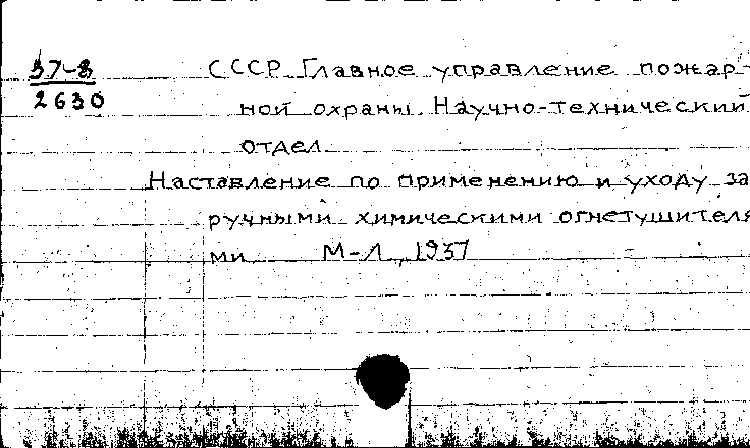 37-8
2630
СССР Главное управление пожар-
ной охраны. Научно-технический
отдел
Наставление по применению и уходу за
ручными химическими огнетушителя
ми М-Л, 1937